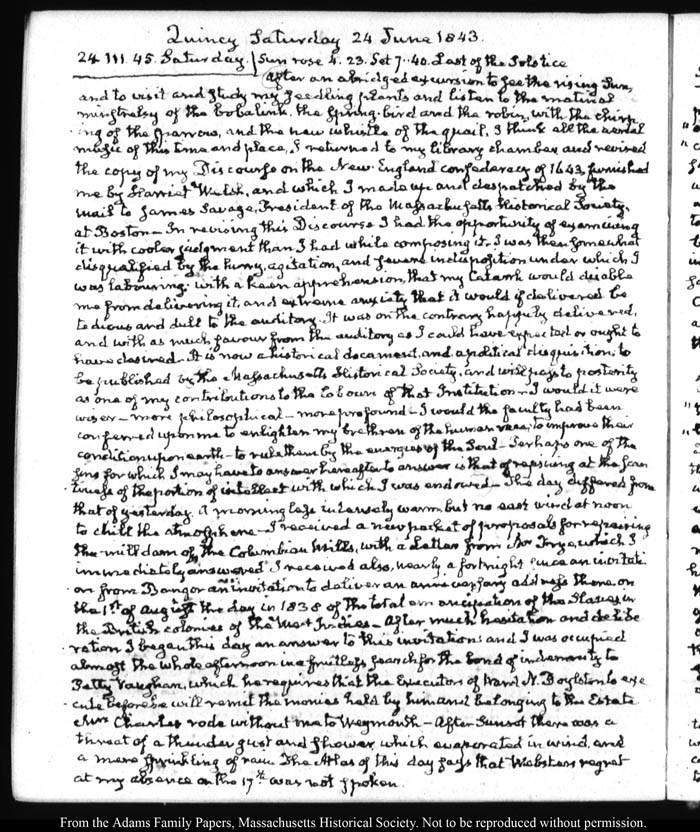 Quincy Saturday 24 June 1843.
24. III. 45. Saturday. Sun rose 4. 23. Set 7..40. Last of the Solstice
After an abridged excursion to see the rising Sun,
and to visit and study my seedling plants and listen to the matinal
minstrelsy of the bobalink, the spring-bird and the robin, with the chirp-
ing of the sparrow, and the new whistle of the quail, I think all the aerial
magic of this time and place, I returned to my library chamber and revised
the copy of my Discourse on the New-England confederacy of 1643, furnished
me by Harriet Welsh, and which I made up and despatched by the
mail to James Savage, President of the Massachusetts Historical Society,
at Boston— In revising this Discourse I had the opportunity of examining
it with cooler judgment than I had while composing it. I was then somewhat
disqualified by the hurry, agitation, and severe indisposition under which I
was labouring: with a keen apprehension, that my Catarrh would disable
me from delivering it, and extreme anxiety that it would if delivered be
tedious and dull to the auditory. It was on the contrary happily delivered,
and with as much favour from the auditory as I could have expected or ought to
have desired. It is now a historical document, and a political disquisition, to
be published by the Massachusetts Historical Society, and will pass to posterity
as one of my contributions to the labours of that Institution— I would it were
wiser— more philosophical— more profound— I would the faculty had been
conferred upon me to enlighten my brethren of the human race, to improve their
condition upon earth— to rule them by the energies of the Soul— Perhaps one of the
sins for which I may have to answer hereafter to answer is that of repining at the scan-
tiness of the portion of intellect with which I was endowed— The day differed from
that of yesterday. A morning less intensely warm, but no east wind at noon
to chill the atmosphere— I received a new packet of proposals for repairing
the mill dam of the Columbian Mills, with a Letter from Mr Frye, which I
immediately answered. I received also, nearly a fortnight since an invitati-
on from Bangor an invitation to deliver an anniversary address there, on
the 1st of August the day in 1838 of the total emancipation of the Slaves in
the British colonies of the West Indies— After much hesitation and delibe-
ration I began this day an answer to this invitation: and I was occupied
almost the whole afternoon in a fruitless search for the bond of indemnity to
Petty Vaughan, which he requires that the Executors of Ward N. Boylston to exe-
cute before he will remit the monies held by him and belonging to the Estate
Mrs Charles rode without me to Weymouth— After Sunset there was a
threat of a thunder gust and shower, which evaporated in wind, and
a mere sprinkling of rain. The Atlas of this day says that Websters regret
at my absence on the 17th was not spoken.
From the Adams Family Papers, Massachusetts Historical Society. Not to be reproduced without permission.